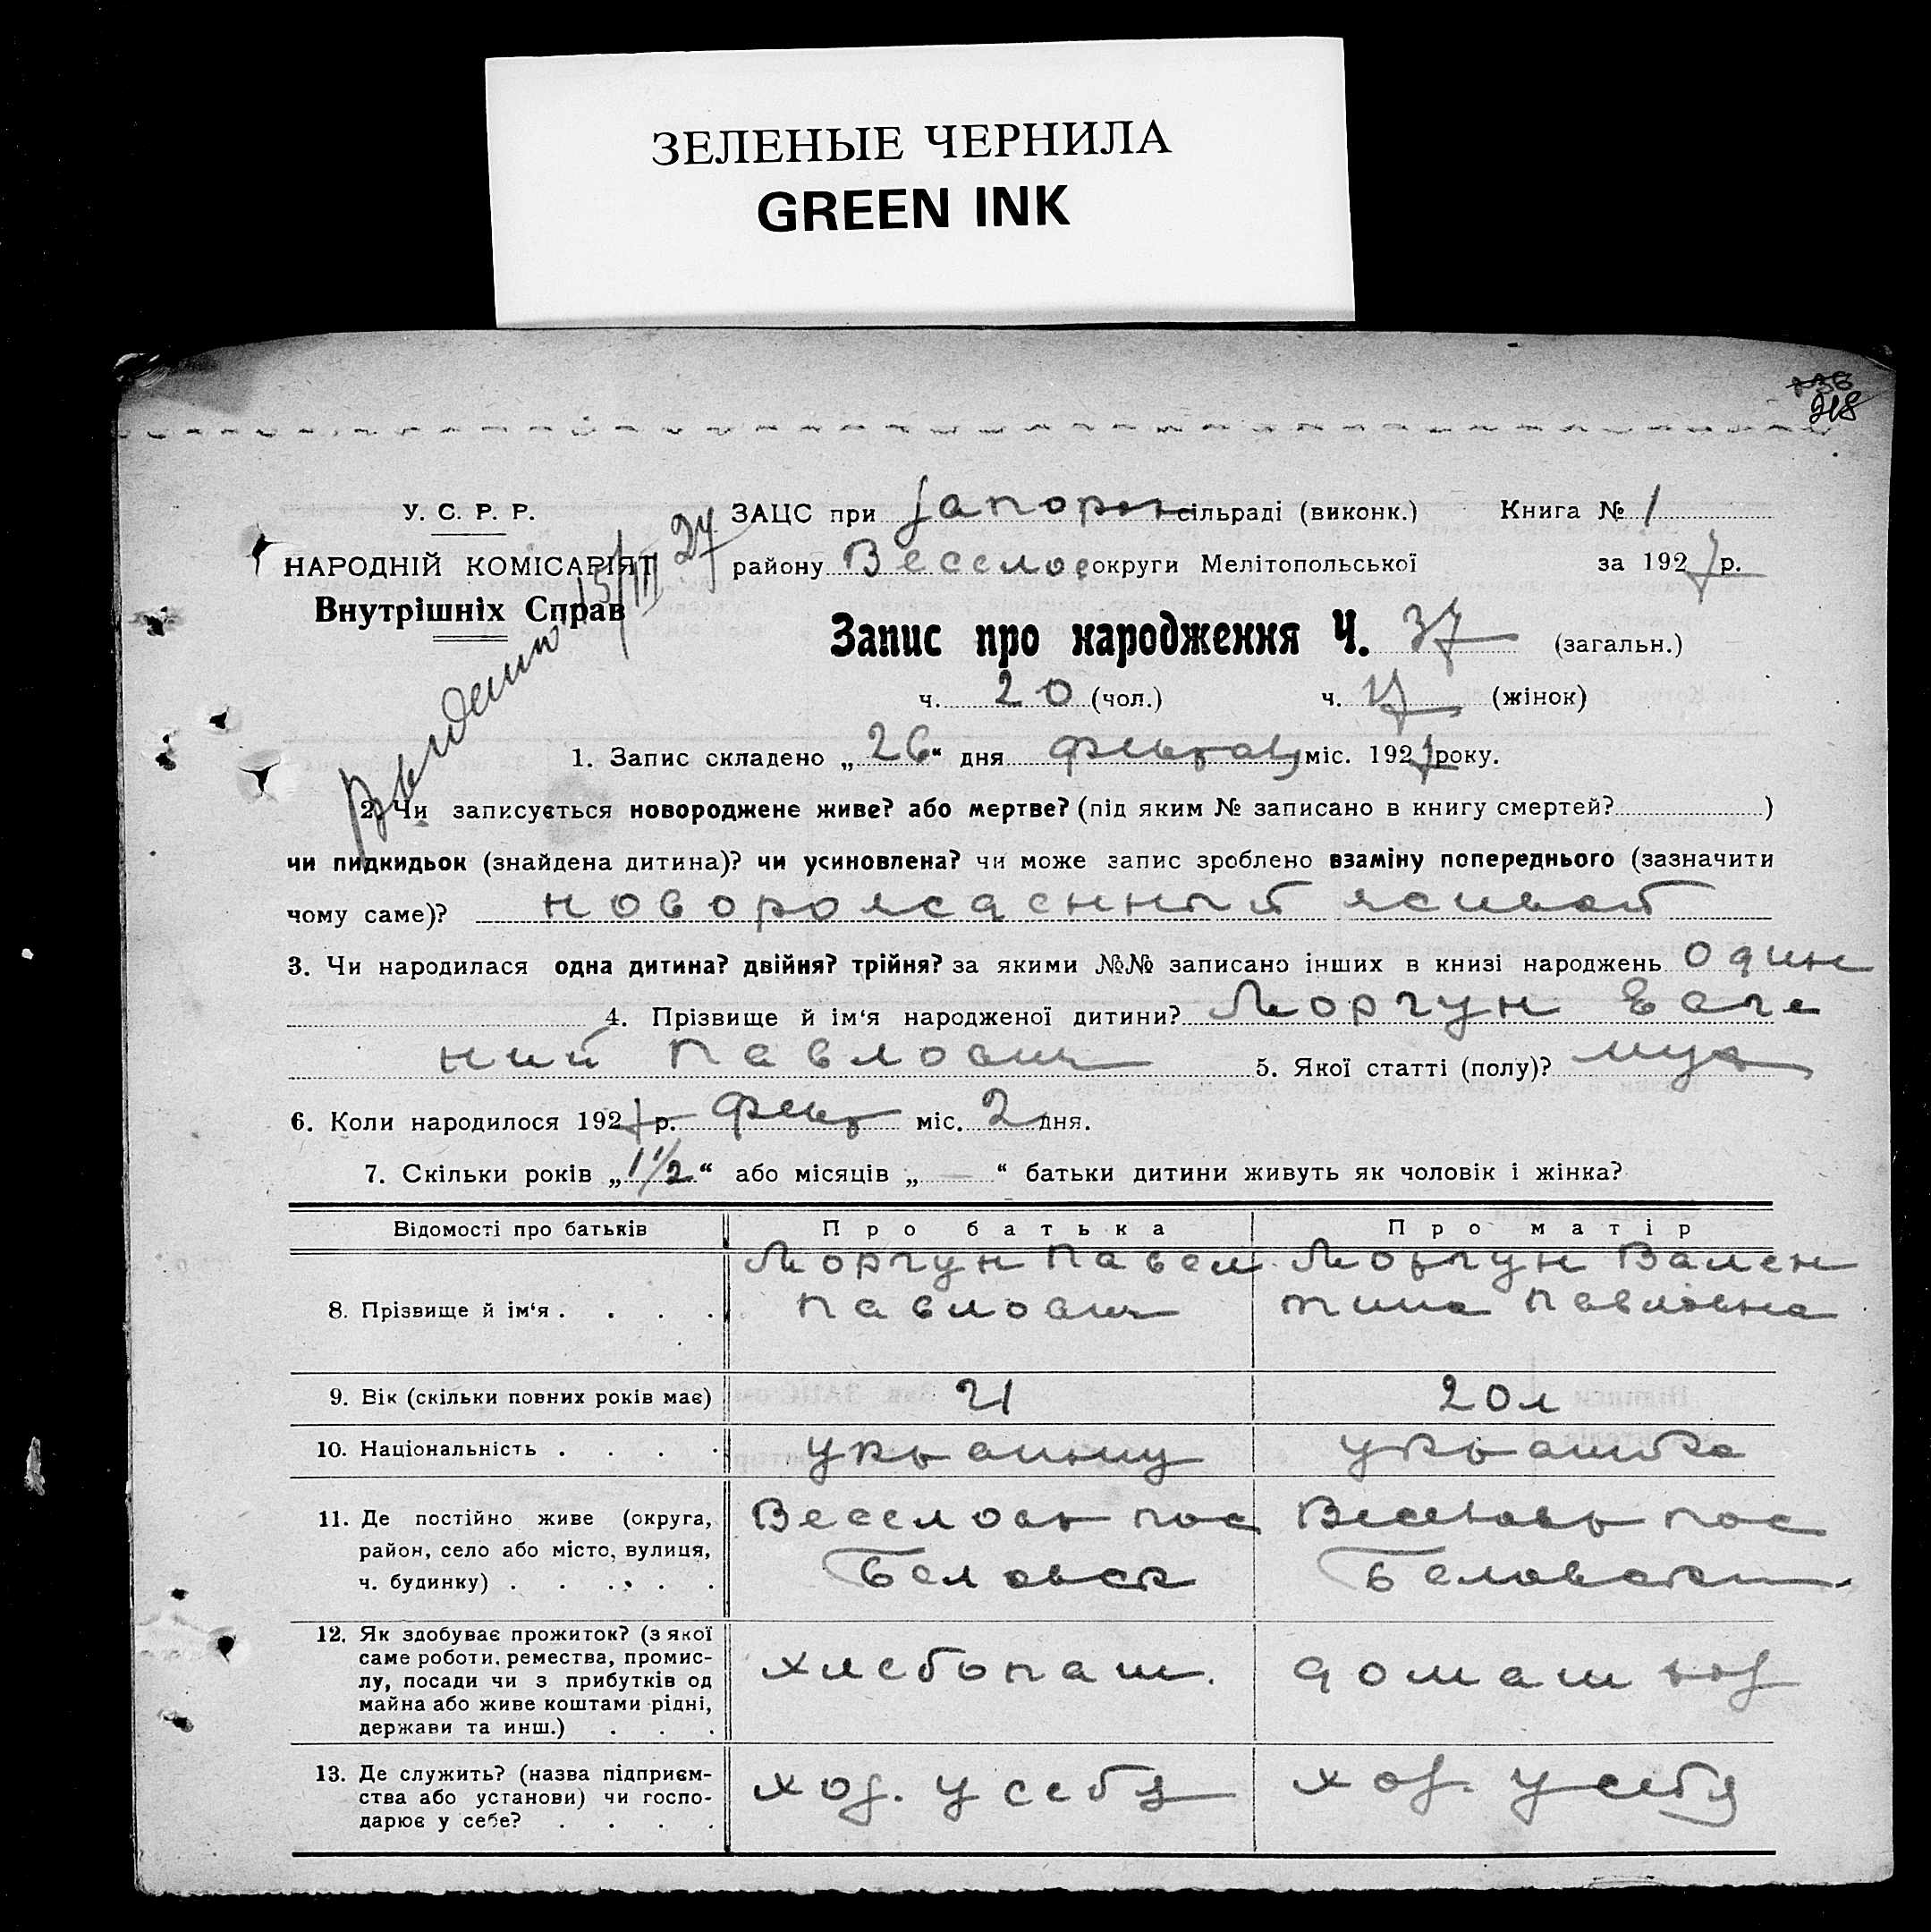 ЗЕЛЕНЫЕ ЧЕРНИЛА
GREEN INK
218
У. С. Р. Р.
НАРОДНІЙ КОМІСАРІЯТ
Внутрішніх Справ
15/III 27
ЗАЦС при Запорож сільраді (виконк.) Книга № 1
району Веселое округи Мелітопольської за 1927 р.
Запис про народження Ч. 37 (загальн.)
ч. 20 (чол.) ч. 17 (жінок)
1. Запис складено „26“ дня февраля міс. 1927 року.
2. Чи записується новороджене живе? або мертве? (під яким № записано в книгу смертей? )
чи пидкидьок (знайдена дитина)? чи усиновлена? чи може запис зроблено взаміну попереднього (зазначити
чому саме)? новорожденный живой
3. Чи народилася одна дитина? двійня? трійня? за якими №№ записано інших в книзі народжень один
4. Прізвище й ім‘я народженої дитини? Моргун Евге
ний Павлович 5. Якої статті (полу)? муж
6. Коли народилося 1927 р. февр міс. 2 дня.
7. Скільки років „1 1/2“ або місяців „—“ батьки дитини живуть як чоловік і жінка?
Відомості про батьків Про батька Про матір
8. Прізвище й ім‘я . . . .
Моргун Павел
Павлович
Моргун Вален
тина Павловна
9. Вік (скільки повних років має) 21 20 л
10. Національність . . . .
11. Де постійно живе (округа,
район, село або місто, вулиця,
ч. будинку) . . . . .
Веселовк пос
Беловск
Веселовк пос
Беловски
12. Як здобуває прожиток? (з якої
саме роботи, ремества, промис-
лу, посади чи з прибутків од
майна або живе коштами рідні,
держави та инш.) . . .
хлебопаш.
домаш хоз
13. Де служить? (назва підприєм-
ства або установи) чи госпо-
дарює у себе? . . . .
хоз. у себя
хоз. у себя